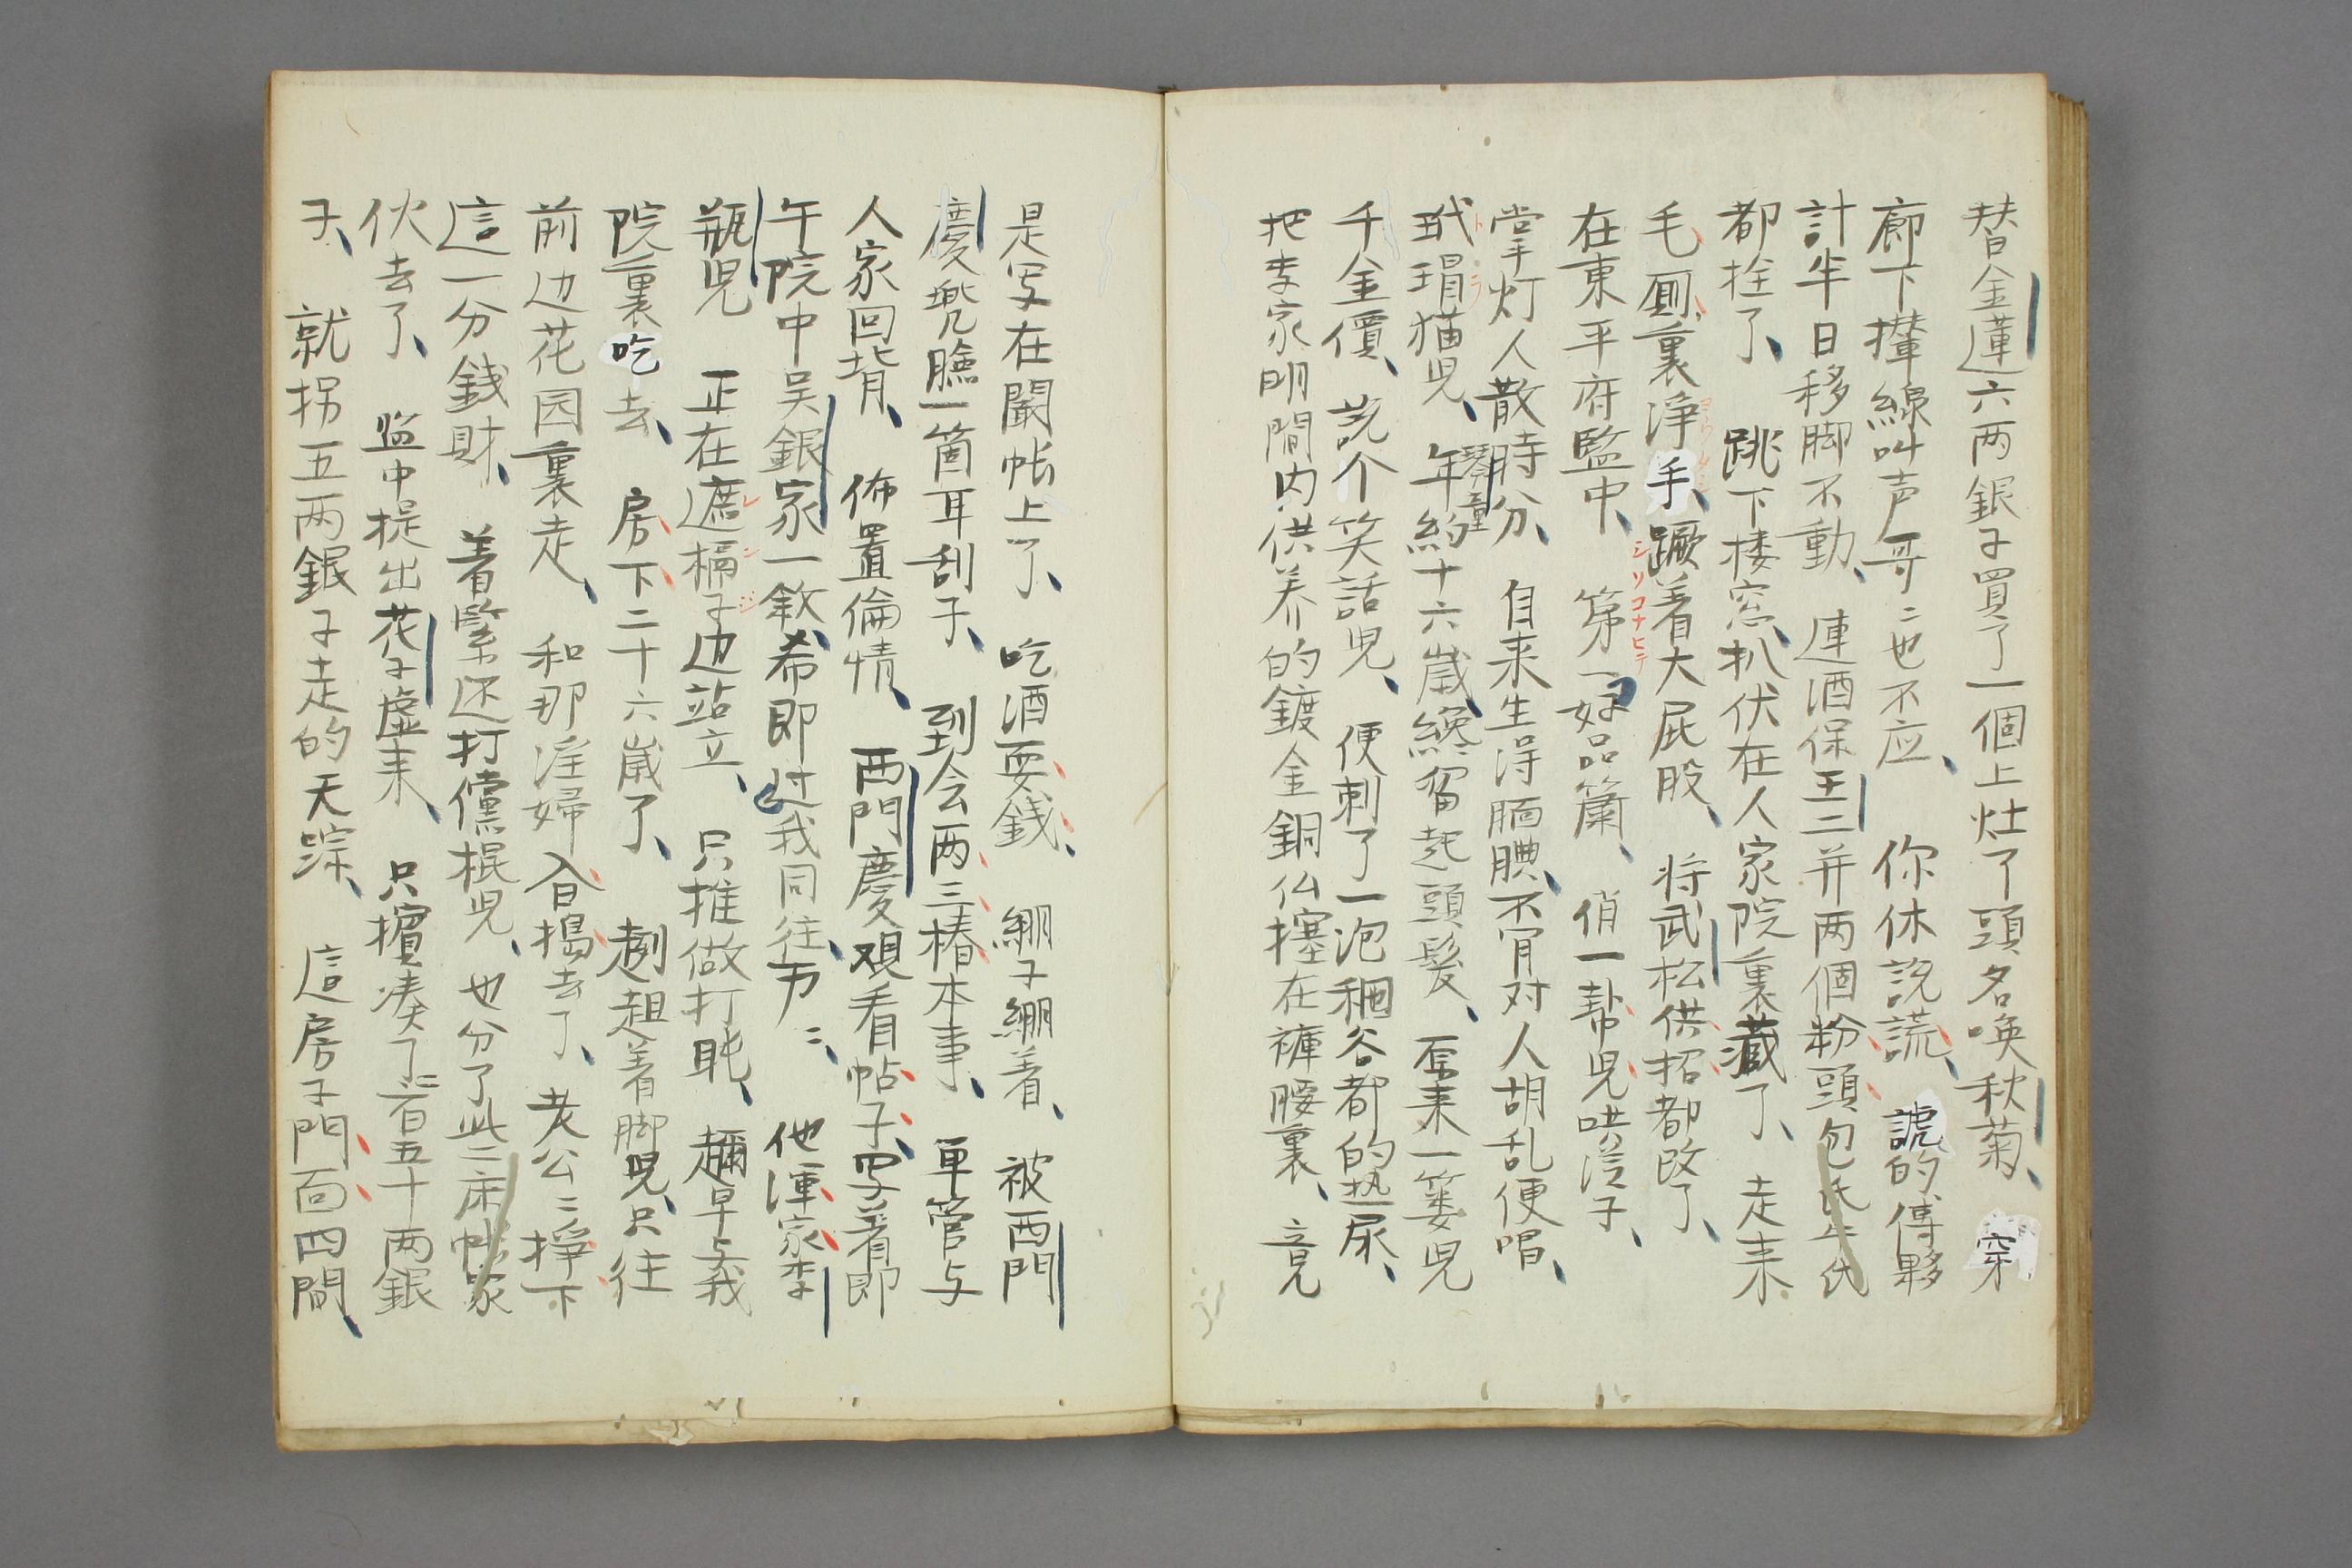 替金蓮六两銀子買了一個上灶丫頭名喚秋菊、穿
廊下攆線叫声哥〻也不应、你休説謊、諕的傅夥
計半日移脚不動、連酒保王二并两個粉頭包氏牛氏
都拴了、跳下楼窓、扒伏在人家院裏藏了、走来
毛厠裏浄手、蹶着大屁股、将武松供招都改了、
在東平府監中、第一好品簫、俏一帮児哄浧子、
掌灯人散時分、自来生得腼腆、不肯对人胡乱便唱、
玳瑁猫児、琴童年約十六歳、纔留起頭髪、套来一篓児
千金價、説个笑話児、便刺了一泡稠谷都的热尿、
把李家明間内供养的鍍金銅仏搴在褲腰裏、竟
是写在嚴帐上了、吃酒耍錢、綳子綳着、被西門
慶兠臉一箇耳刮子、到会两三椿本事、单管与
人家回背、佈置倫情、西門慶観看帖子、写着即
午院中吴銀家一敘、希即过我同往、万〻、他渾家李
瓶児　正在遮槅子边站立、只推做打盹、趰早与我
院裏吃去、房下二十六歳了、趔趄着脚児、只往
前边花园裏走、和那淫婦㒲搗去了、老公〻掙下
這一分錢財、着緊还打儻棍児、也分了些床帐家
伙去了、监中提出花子虚来、只擯凑了二百五十两銀
子、就拐五两銀子走的无踪、這房子門面四間、
レンジ
シリコナヒテ
トラ